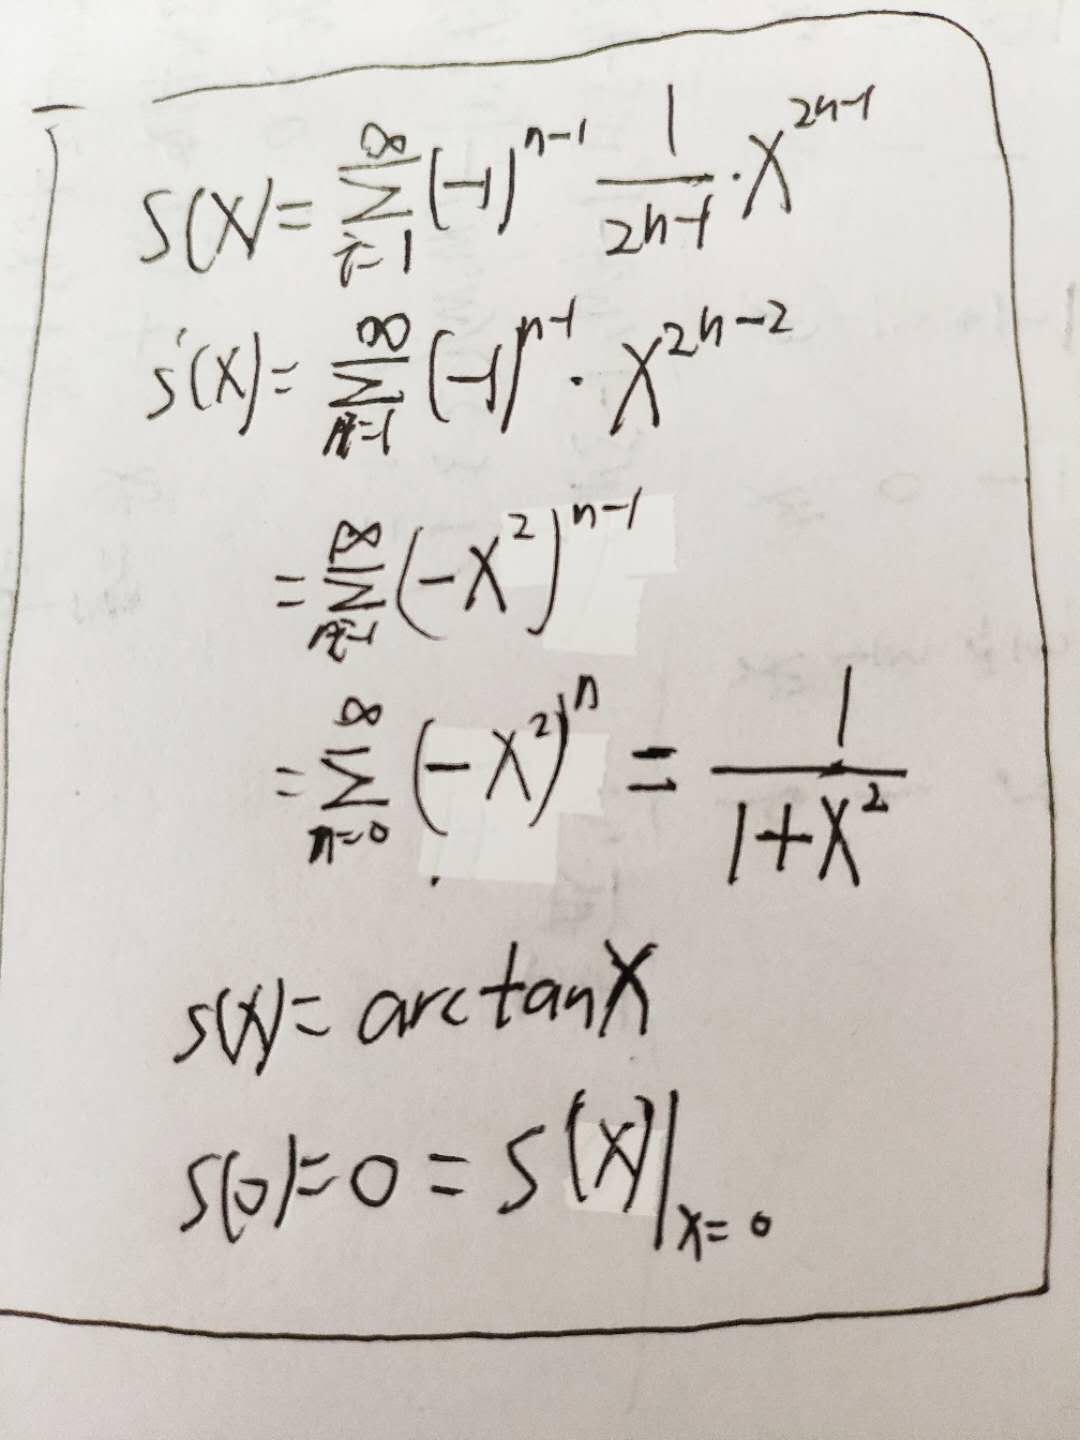 S(x) = ∑_{i=1}^{∞} (-1)^{n-1} \frac{1}{2n-1} · x^{2n-1}
S'(x) = ∑_{n=1}^{∞} (-1)^{n-1} · x^{2n-2}
= ∑_{n=1}^{∞} (-x^2)^{n-1}
= ∑_{n=0}^{∞} (-x^2)^n = \frac{1}{1+x^2}
S(x) = arctan x
S(0) = 0 = S(x)|_{x=0}